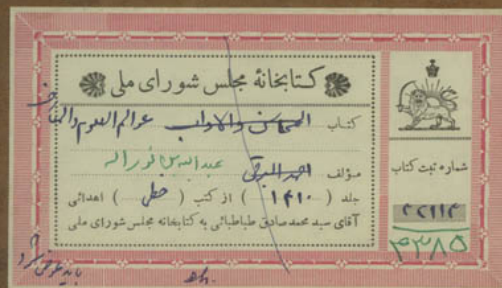 کتابخانهٔ مجلس شورای ملی
کتاب المحاسن والاداب عوالم العلوم والمعارف
مؤلف احمد البرقی عبدالله بن نورالله
جلد (۱۴۱۰) از کتب (خطی) اهدائی
آقای سید محمد صادق طباطبائی به کتابخانه مجلس شورای ملی
شماره ثبت کتاب
۴۲۱۱۴
۴۳۸۵
باید عوض شود